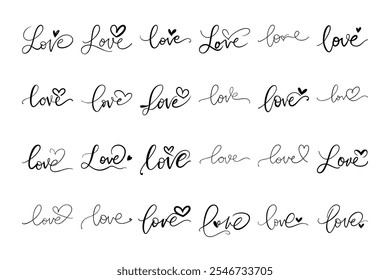 Love Love love Love love love
love love Love love love love
love Love love love love Love
love love love love love love
shutterstock
IMAGE ID: 2546733705
www.shutterstock.com